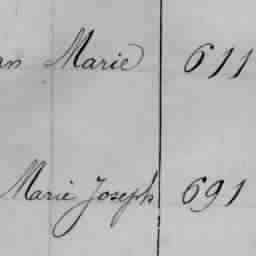 an Marie 611
Marie Joseph 691